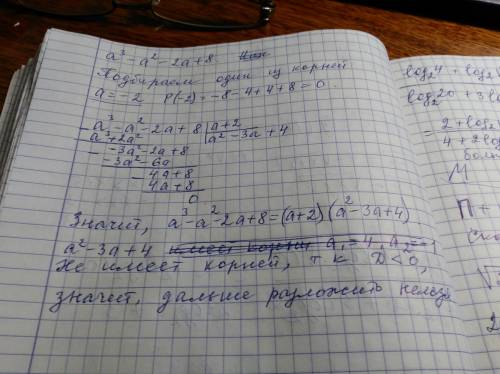 a³ - a² - 2a + 8
Подбираем один из корней
a = -2 P(-2) = -8 - 4 + 4 + 8 = 0
a³ - a² - 2a + 8 | a + 2
a³ + 2a² a² - 3a + 4
-3a² - 2a + 8
-3a² - 6a
4a + 8
4a + 8
0
Значит, a³ - a² - 2a + 8 = (a + 2)(a² - 3a + 4)
a² - 3a + 4 имеет корни a₁ = 4, a₂ =
Не имеет корней, т.к D < 0,
значит, дальше разложить нельзя
log₂4 + log₂
log₂20 + 3 log
2 + log₂
4 + 2 log
П +
2